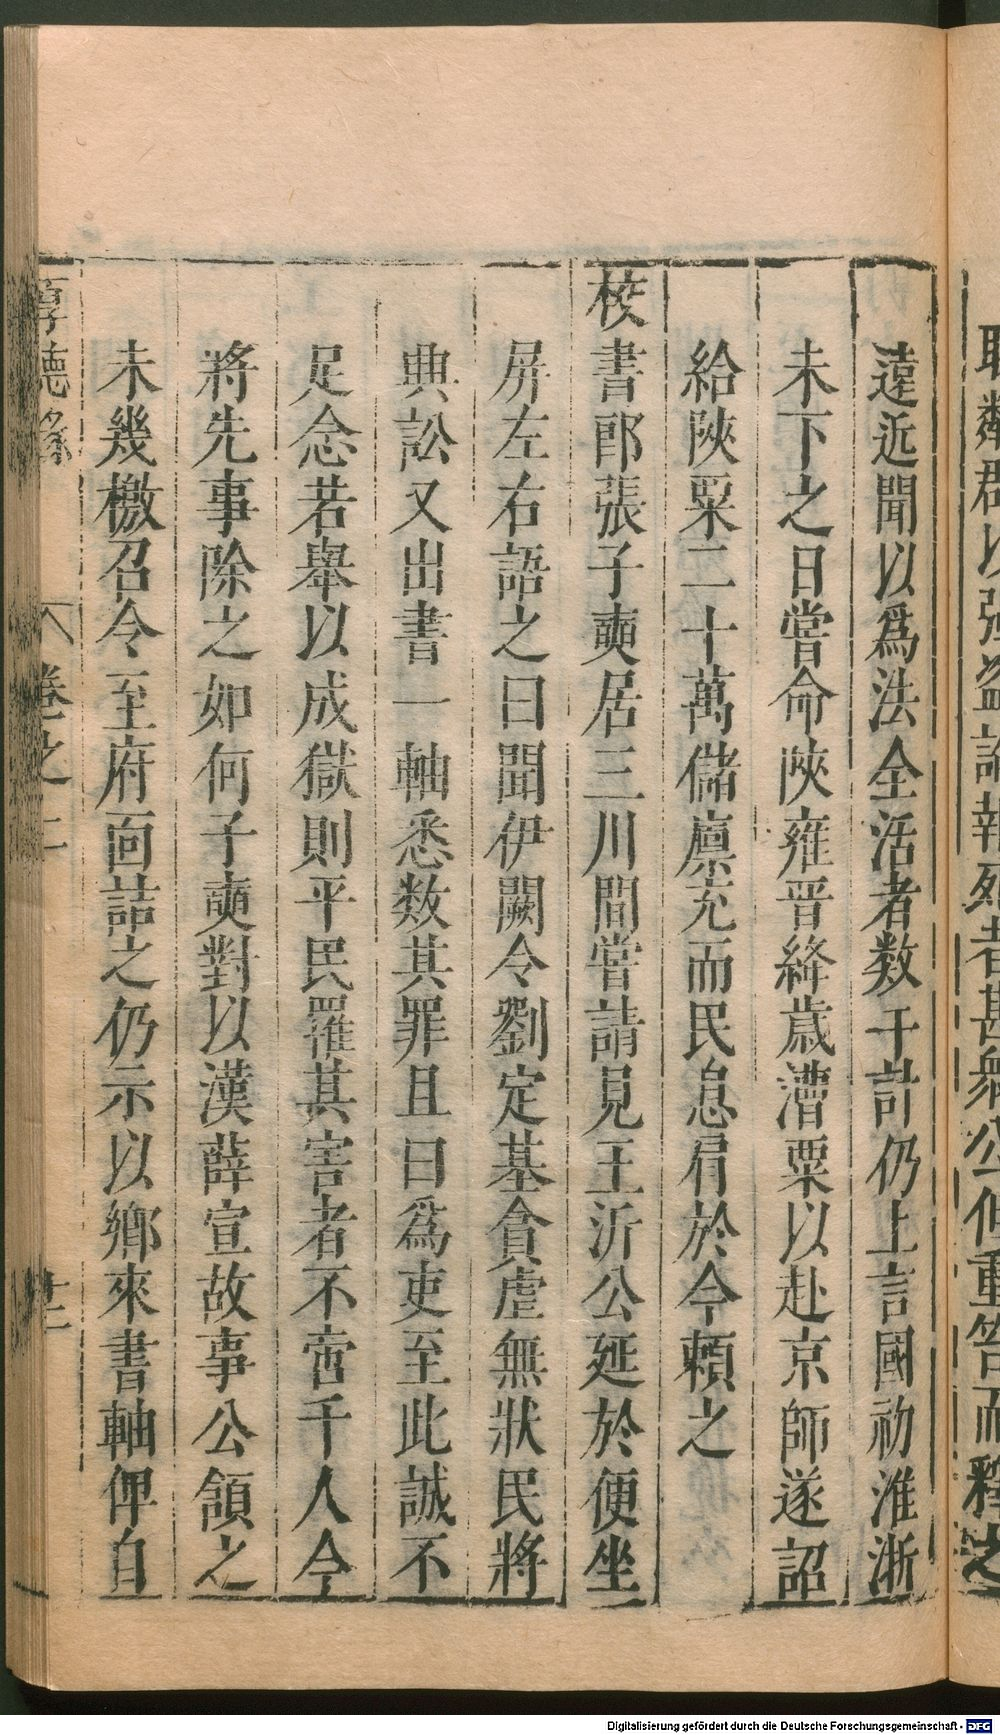 聴鄰群以強盗論報死者甚衆公但重笞而釋之
遠近聞以爲法全活者数千計仍上言國初淮浙
未下之日嘗命陜雍晋絳歳漕粟以赴京師遂詔
給陜粟二十萬儲廪充而民息肩於今頼之
校書郎張子奭居三川間嘗請見王沂公延於便坐
屏左右語之曰聞伊闕令劉定基貪虐無狀民將
典訟又出書一軸悉数其罪且曰爲吏至此誠不
足念若舉以成獄則平民罹其害者不啻千人今
將先事除之如何子奭對以漢薛宣故事公頷之
未幾檄召令至府面詰之仍示以鄉來書軸俾自
厚德錄 卷之二 十二
Digitalisierung gefördert durch die Deutsche Forschungsgemeinschaft - DFG